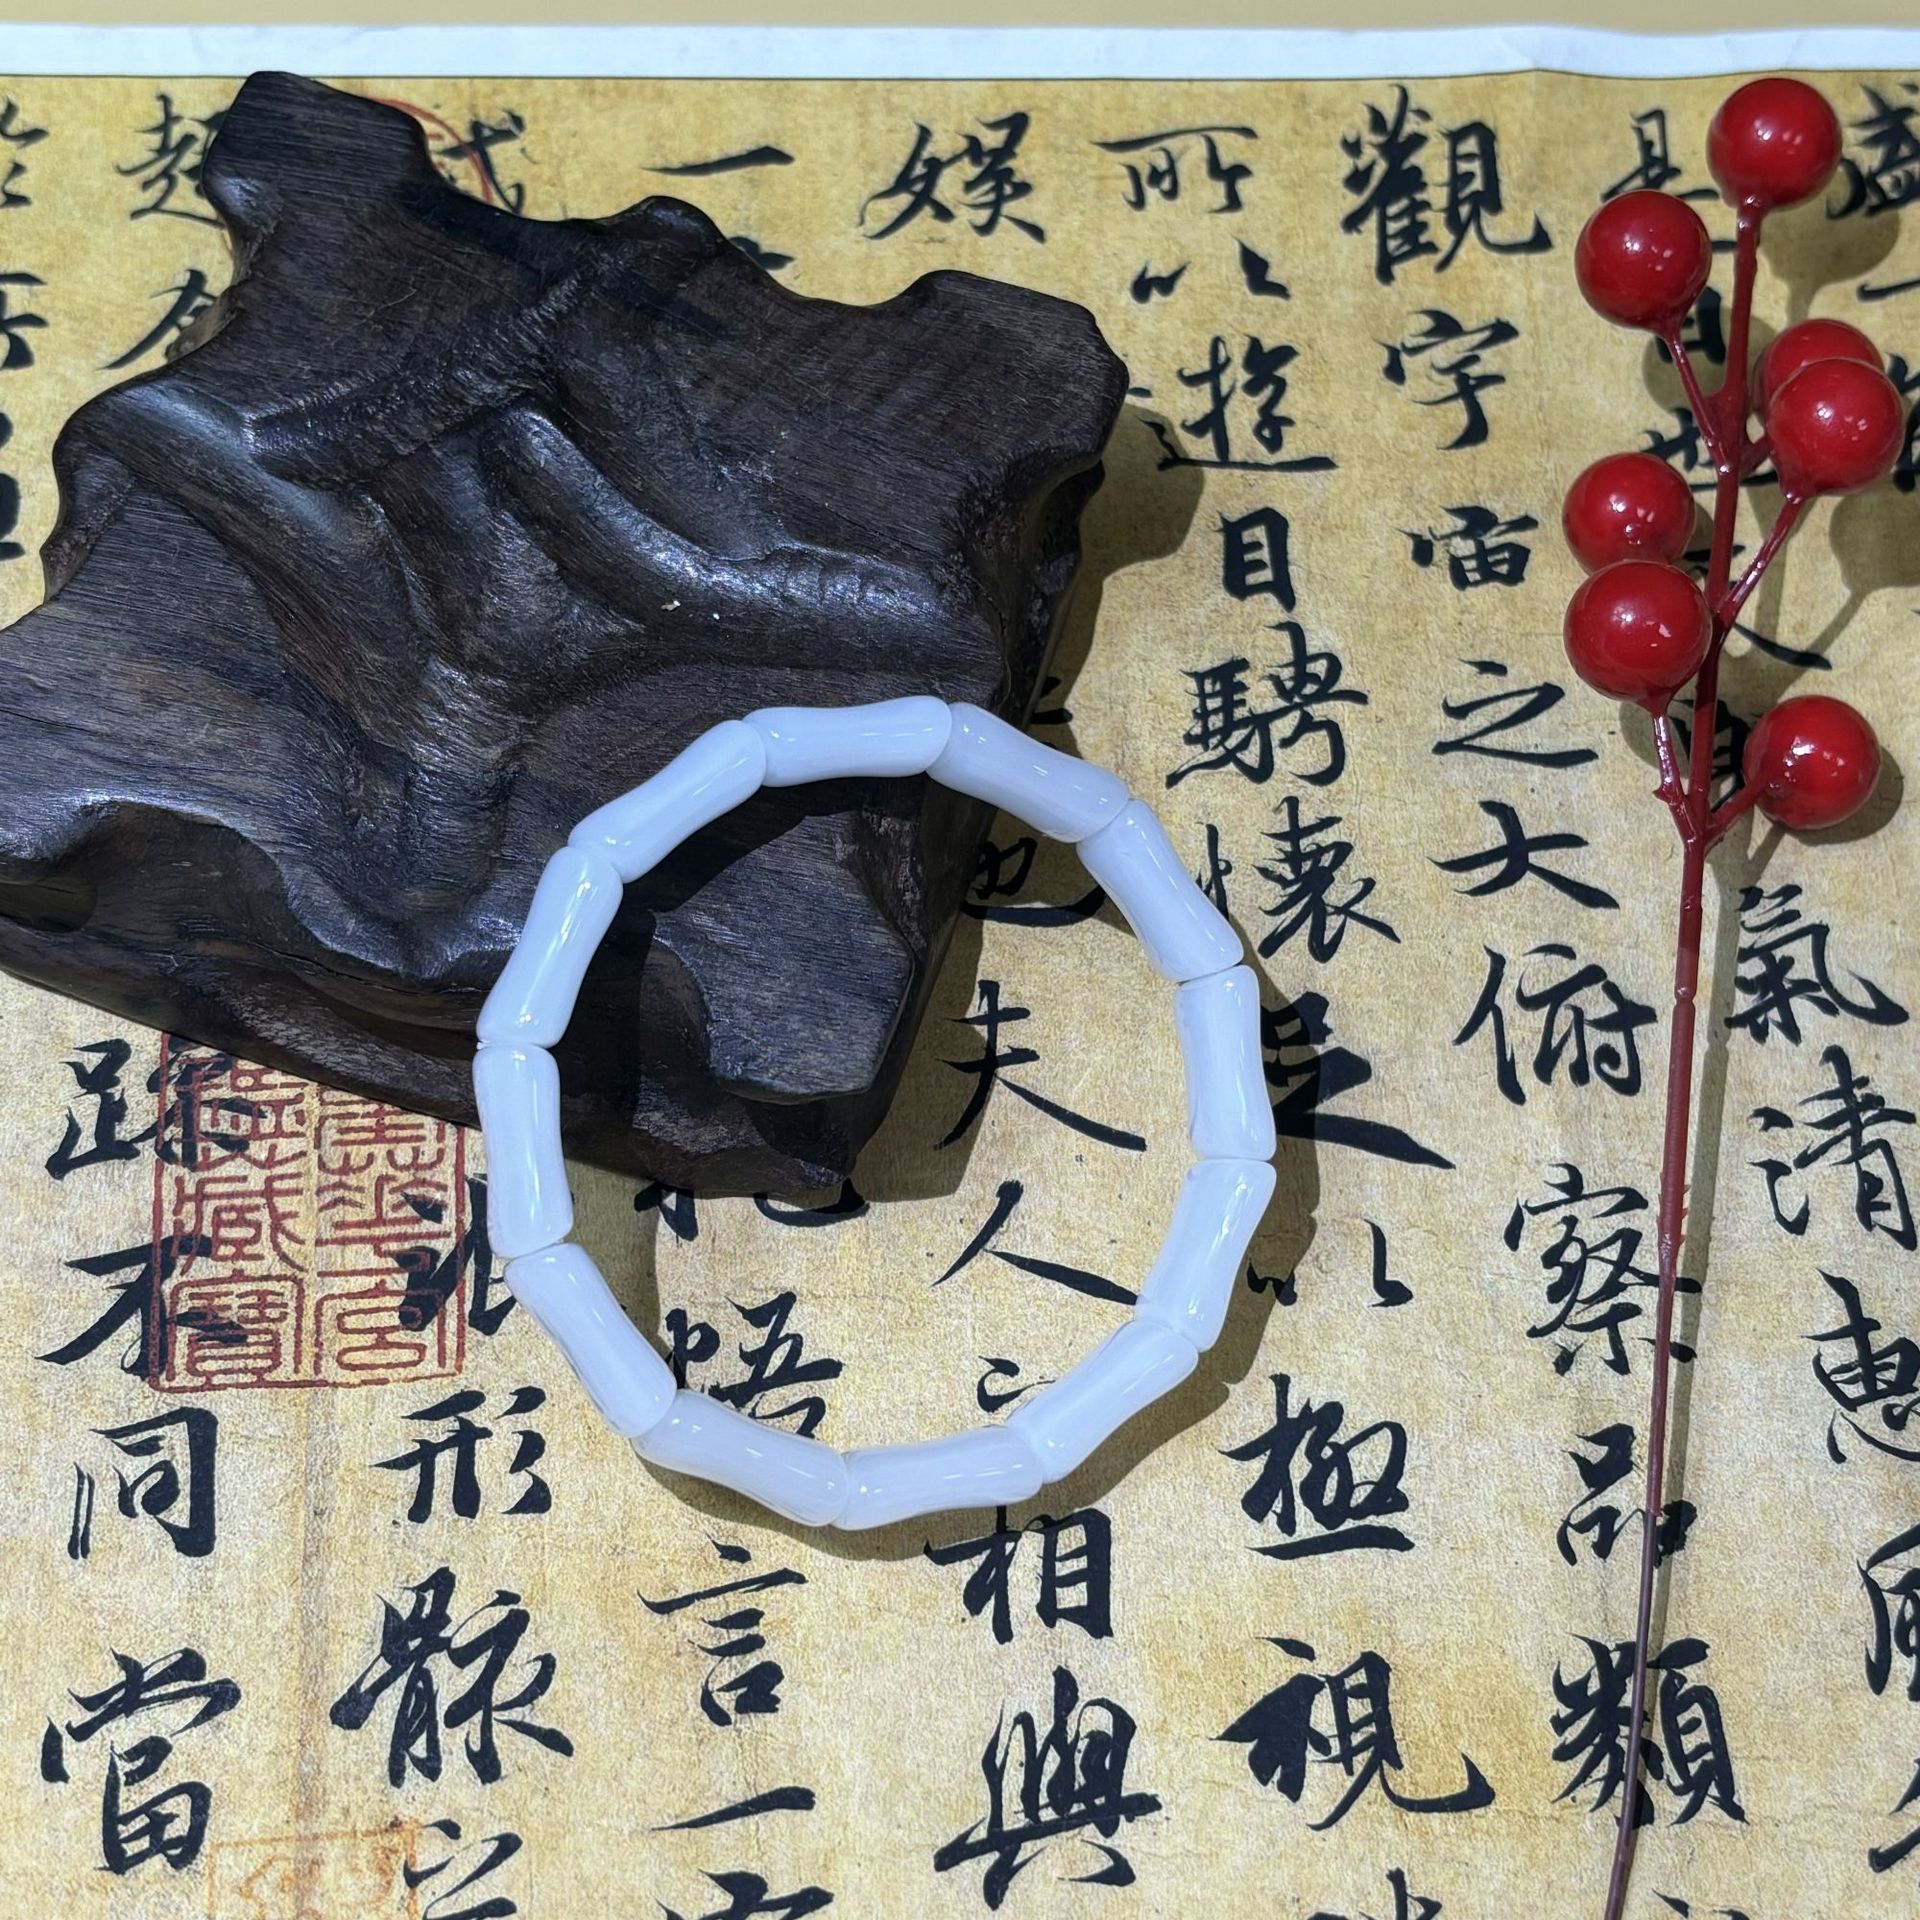 盛一
是日也天朗氣清惠風
觀宇宙之大俯察品類
所以遊目騁懷足以極視
娛也夫人之相與
一悟言一
或形骸之
趣舍躁不同當
重華宮
鑑藏寶